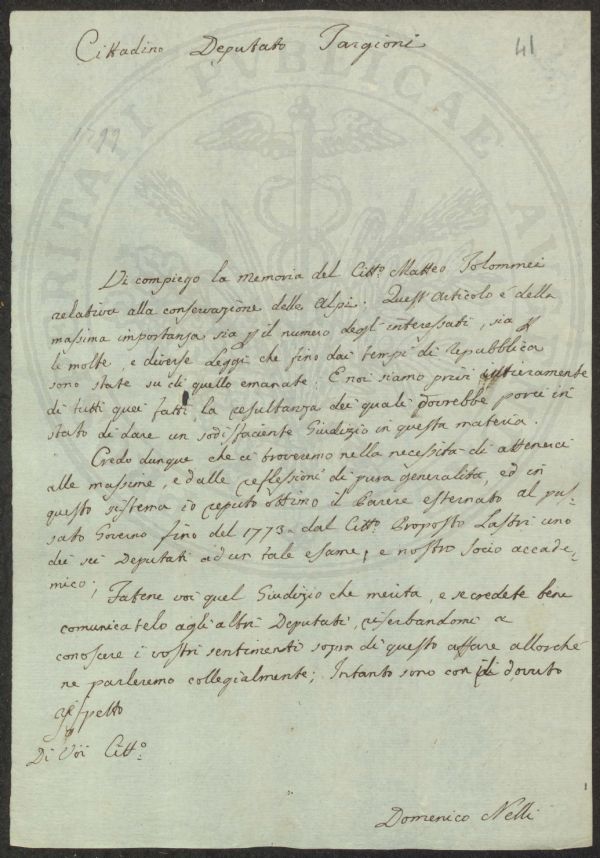 Cittadino Deputato Targioni
41
1799
Di compiego la memoria del Citt.o Matteo Tolommei
relativa alla conservazione delle Alpi. Quest'Articolo è della
massima importanza sia p il numero degl'interessati, sia p
le molte, e diverse Leggi che fino dai tempi di Repubblica
sono state su di quello emanate. E noi siamo privi interamente
di tutti quei fatti, la resultanza dei quali dovrebbe porci in
stato di dare un sodisfaciente Giudizio in questa materia.
Credo dunque che ci troveremo nella necessità di attenerci
alle massime, e dalle reflessioni di pura generalità, ed in
questo sistema io reputo ottimo il Parere esternato al pas=
sato Governo fino del 1773. dal Citt.o Proposto Lastri uno
dei sei Deputati ad un tale esame, e nostro socio accade=
mico; Fatene voi quel Giudizio che merita, e se credete bene
comunicatelo agli altri Deputati, riserbandomi a
conoscere i vostri sentimenti sopra di questo affare allorché
ne parleremo collegialmente; Intanto sono con il dovuto
rispetto
Di Voi Citt.o
Domenico Nelli
PUBLICAE